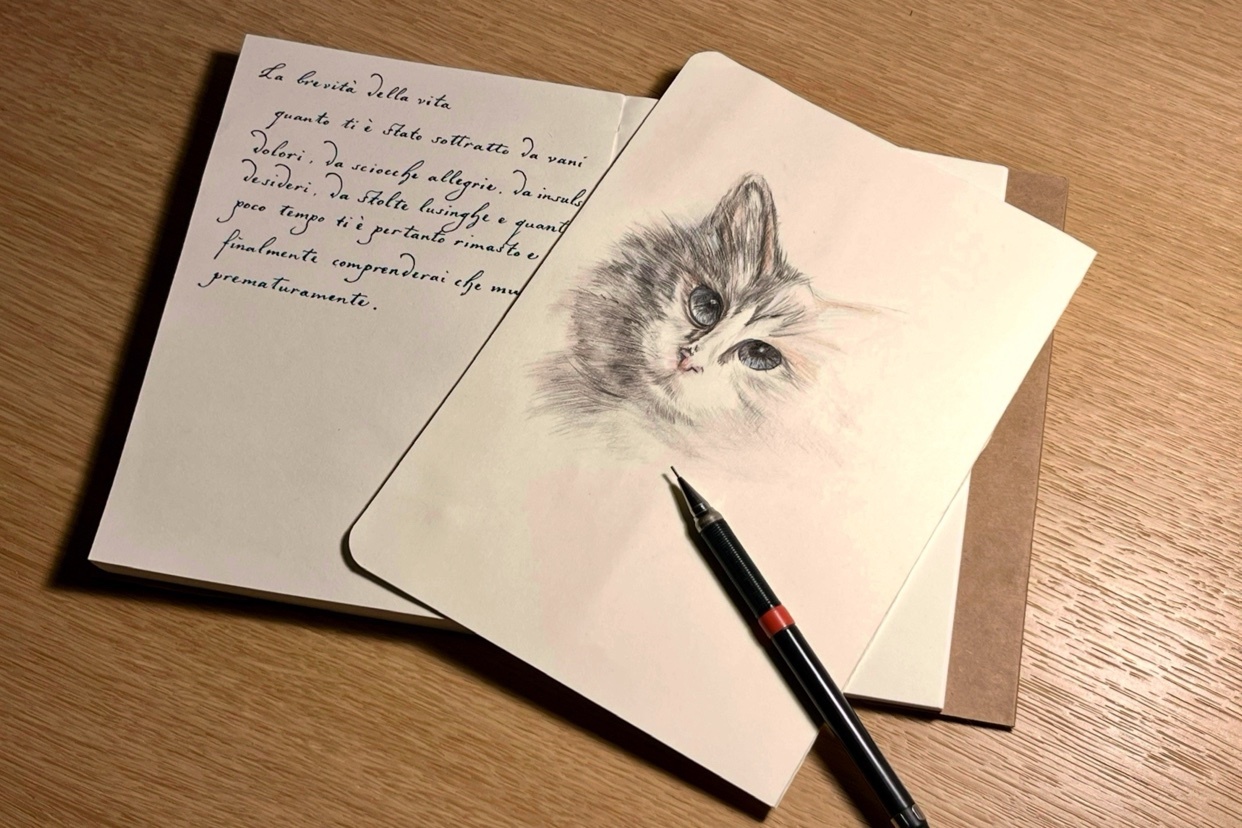 La brevità della vita
quanto ti è stato sottratto da vani
dolori, da sciocche allegrie, da insuls
desideri, da stolte lusinghe e quant
poco tempo ti è pertanto rimasto e
finalmente comprenderai che mu
prematuramente.